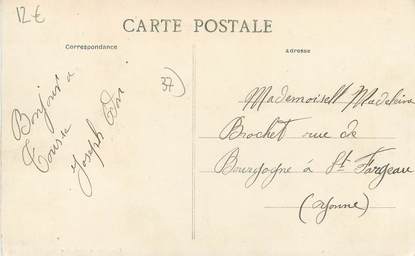 12€
CARTE POSTALE
Correspondance
Adresse
37)
Bonjour a
Joseph
Mademoiselle Madeleine
Brochet rue de
Bourgogne à St Fargeau
(Yonne)